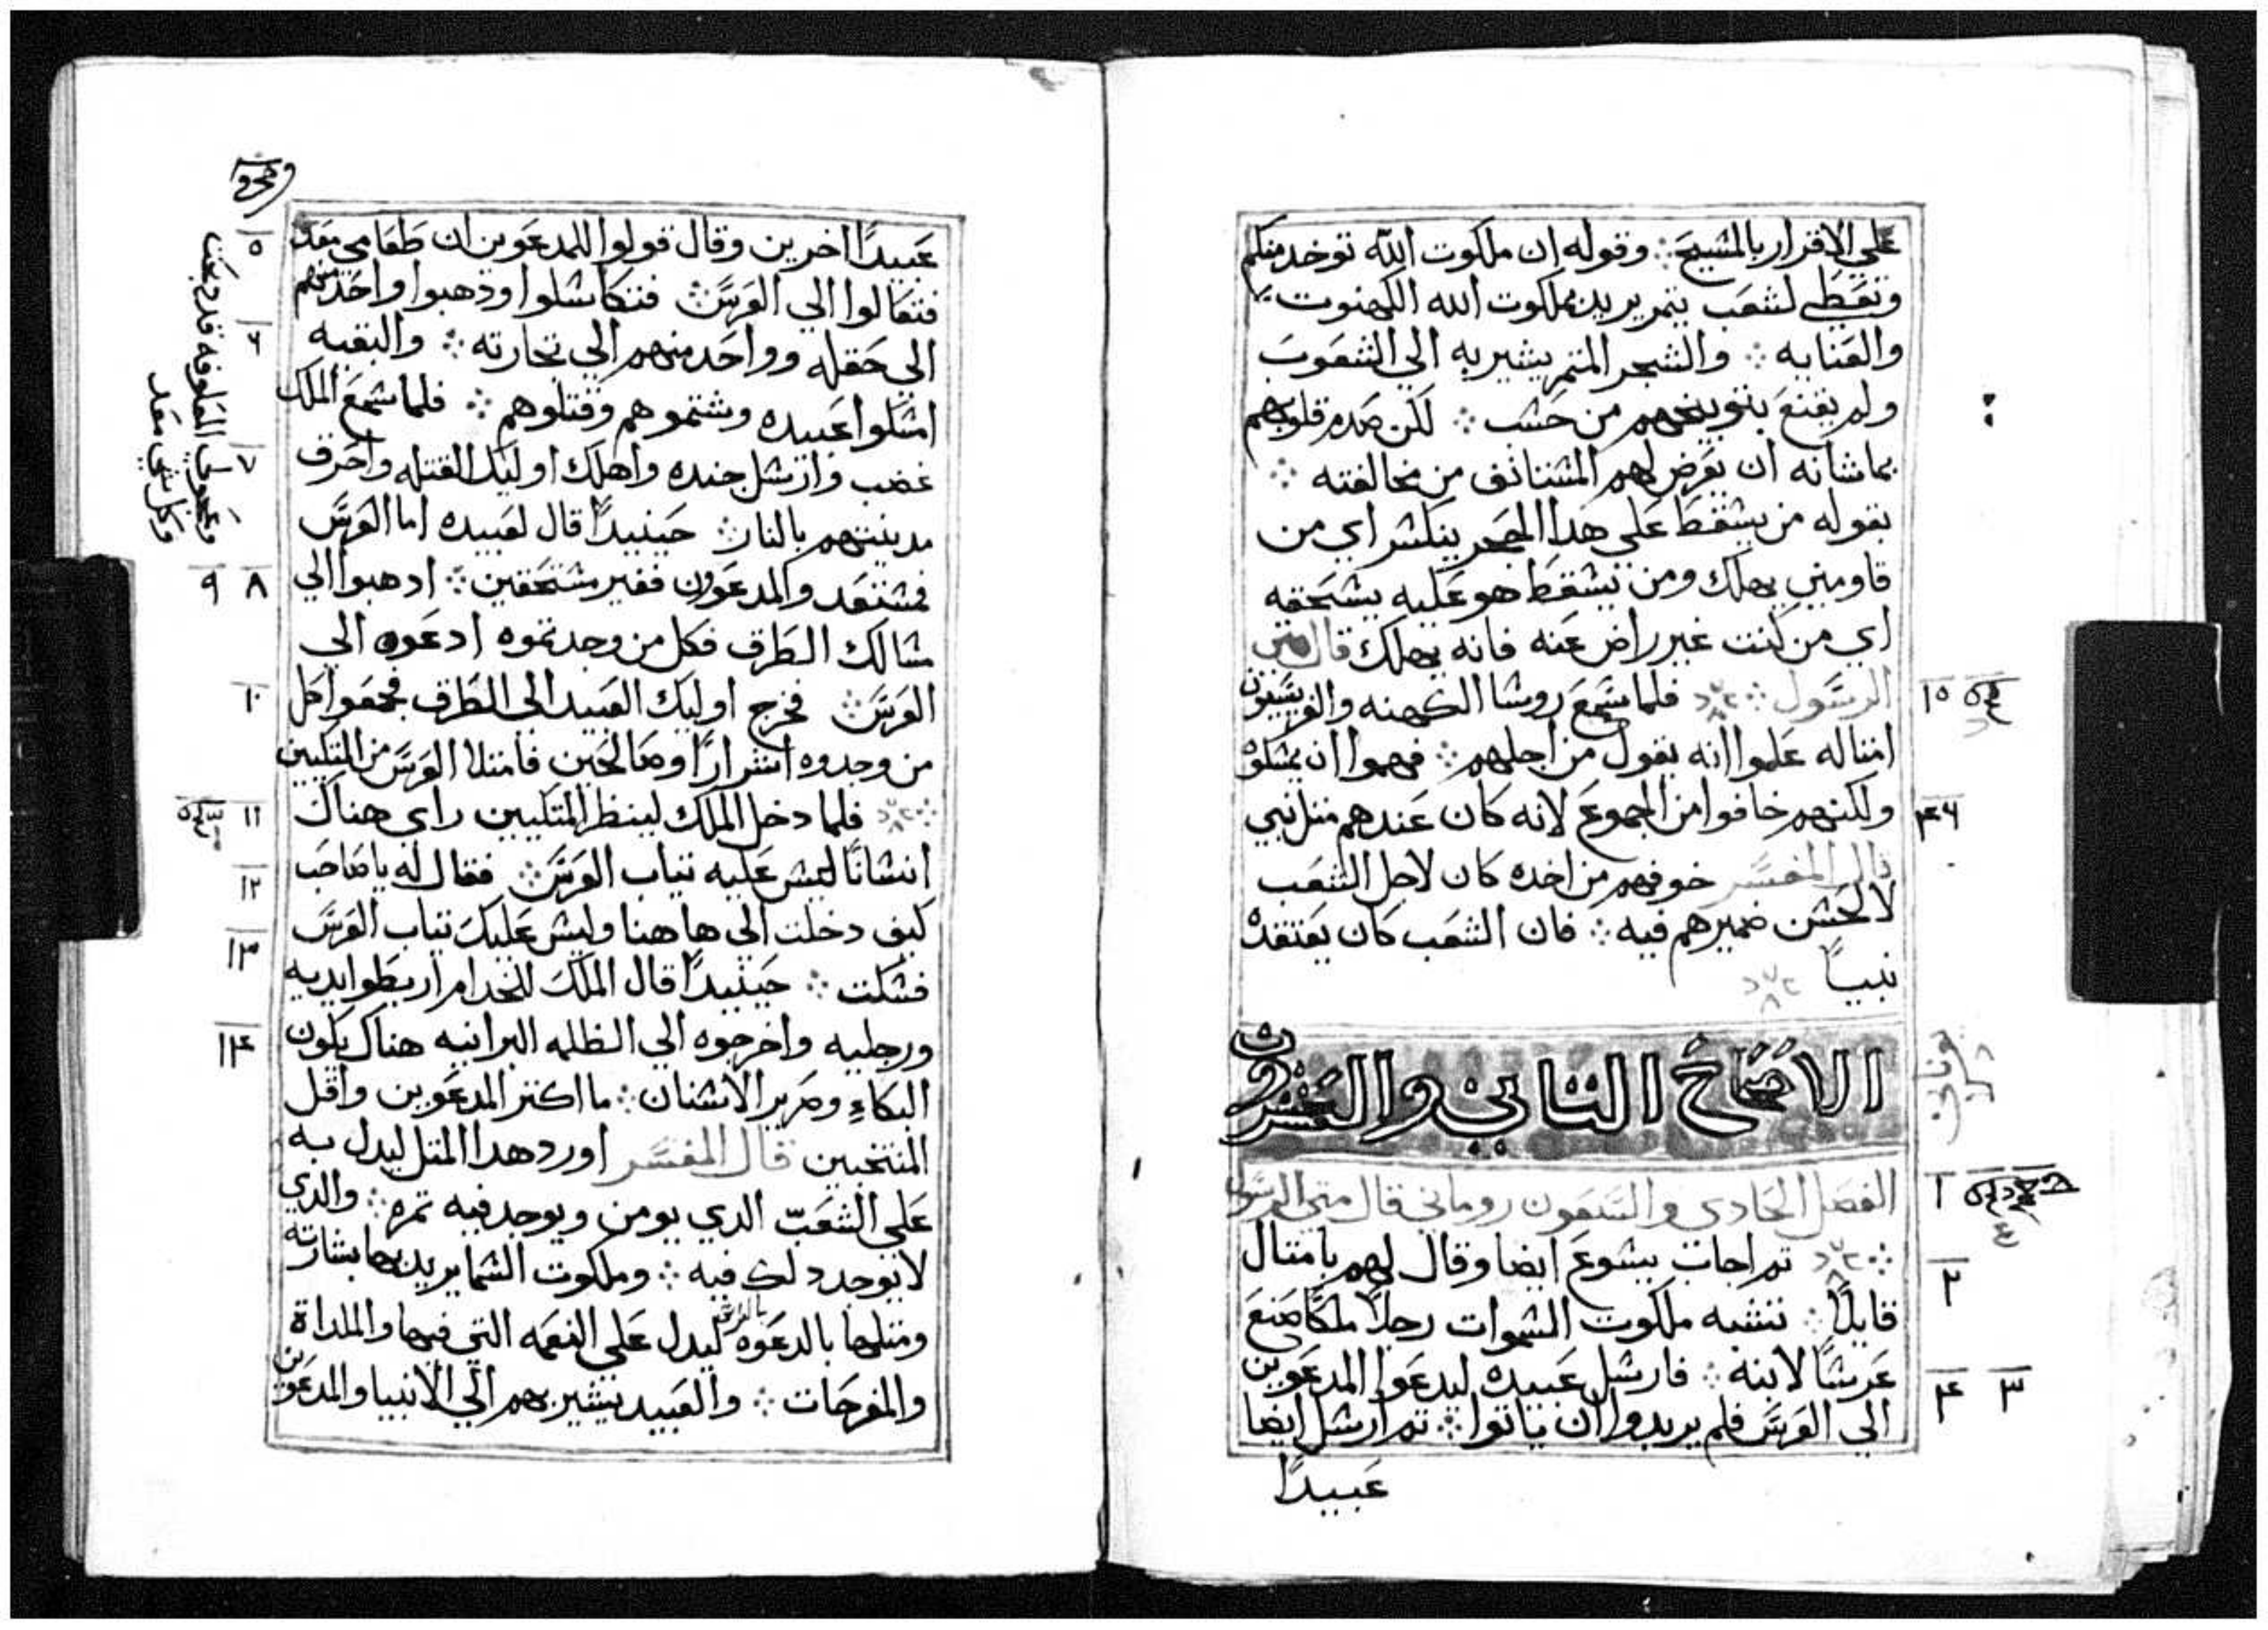 علي الاقرار بالمسيح ⁘ وقوله ان ملكوت الله توخد منكم
وتعطي لشعب يتمر يريد بملكوت الله الكهنوت
والعنايه ⁘ والشجر المتمر يشير به الي الشعوب
ولم يقنع بتوبيخهم من حسب ⁘ لكن صدم قلوبهم
بما شانه ان يعرض لهم المستانف من مخالفته ⁘
بقوله من يسقط علي هدا الحجر ينكسر اي من
قاومني يهلك ومن يسقط هو عليه يسحقه
اي من كنت غير راض عنه فانه يهلك قال متي
الرسول ⁘ فلما سمع روسا الكهنه والفريسيون
امتاله علموا انه يقول من اجلهم ⁘ فهموا ان يمسكوه
ولكنهم خافوا من الجموع لانه كان عندهم متل نبي
قال المفسر خوفهم من اخده كان لاجل الشعب
لا لحسن ضميرهم فيه ⁘ فان الشعب كان يعتقده
نبياً
الاصحاح التاني والعشرون
الفصل الحادي والسبعون روماني قال متي الرسول
⁘ تم اجاب يسوع ايضا وقال لهم بامتال
قايلاً ⁘ تشبه ملكوت السموات رجلاً ملكاً صنع
عرساً لابنه ⁘ فارسل عبيده ليدعوا المدعوين
الي العرس فلم يريدوا ان ياتوا ⁘ تم ارسل ايضا
عبيداً
١٥
٤٦
يوناني
١
٢
٣ ٤
عبيداً اخرين وقال قولوا للمدعوين ان طعامي معد
فتعالوا الي العرس ⁘ فتكاسلوا ودهبوا واحد منهم
الي حقله وواحد منهم الي تجارته ⁘ والبقيه
امسكوا عبيده وشتموهم وقتلوهم ⁘ فلما سمع الملك
غضب وارسل جنده واهلك اوليك القتله واحرق
مدينتهم بالنار ⁘ حينيداً قال لعبيده اما العرس
فمستعد والمدعوون فغير مستحقين ⁘ ادهبوا الي
مسالك الطرق فكل من وجدتموه ادعوه الي
العرس ⁘ فخرج اوليك العبيد الي الطرق فجمعوا كل
من وجدوه اشراراً وصالحين فامتلا العرس من المتكيين
⁘ فلما دخل الملك لينظر المتكيين راي هناك
انساناً ليس عليه تياب العرس ⁘ فقال له يا صاحب
كيف دخلت الي ها هنا وليس عليك تياب العرس
فسكت ⁘ حينيداً قال الملك للخدام اربطوا يديه
ورجليه واخرجوه الي الظلمه البرانيه هناك يكون
البكاء وصرير الاسنان ⁘ ما اكتر المدعوين واقل
المنتخبين قال المفسر اورد هدا المتل ليدل به
علي الشعب الدي يومن ويوجد فيه تمره ⁘ والدي
لا يوجد دلك فيه ⁘ وملكوت السما يريد بها بشارته
ومتلها بالدعوه ليدل علي النعمه التي فيها والملداة
والمفرحات ⁘ والعبيد يشير بهم الي الانبيا والمدعوين
وعجولي المعلوفه قد دبحت
وكل شي معد
٥
٦
٧
٨ ٩
١٠
١١
١٢
١٣
١٤